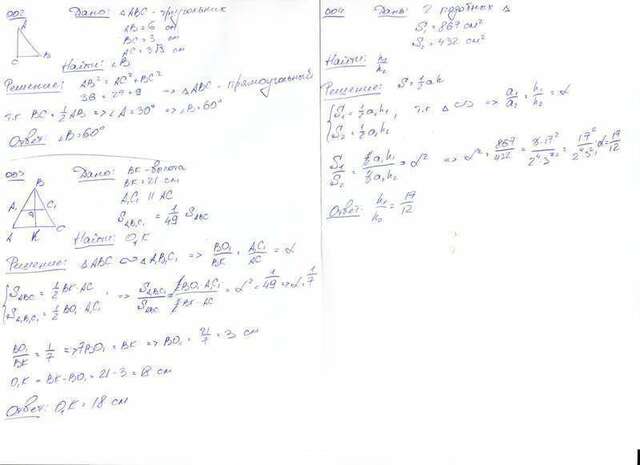 002 Дано: △ABC - треугольник
AB = 6 см
BC = 3 см
AC = 3√3 см
A
C B
Найти: ∠B
Решение: AB² = AC² + BC²
36 = 27 + 9 → △ABC - прямоугольный
т.к BC = 1/2 AB => ∠A = 30° => ∠B = 60°
Ответ: ∠B = 60°
003 Дано: BK - высота
BK = 21 см
A₁C₁ || AC
S A₁B₁C₁ = 1/49 S ABC
B
A₁ C₁
A K C
Найти: O₁K
Решение: △ABC ∞ △A₁B₁C₁ => BO₁/BK = A₁C₁/AC = α
{ S ABC = 1/2 BK·AC
S A₁B₁C₁ = 1/2 BO₁·A₁C₁ => S A₁B₁C₁/S ABC = 1/2 BO₁·A₁C₁ / 1/2 BK·AC = α² = 1/49 => α = 1/7
BO₁/BK = 1/7 => 7BO₁ = BK => BO₁ = 21/7 = 3 см
O₁K = BK - BO₁ = 21 - 3 = 18 см
Ответ: O₁K = 18 см
004 Дано: 2 подобных △
S₁ = 867 см²
S₂ = 432 см²
Найти: h₁/h₂
Решение: S = 1/2 ah
{ S₁ = 1/2 a₁h₁
S₂ = 1/2 a₂h₂ , т.к △ ∞ => a₁/a₂ = h₁/h₂ = α
S₁/S₂ = 1/2 a₁h₁ / 1/2 a₂h₂ = α² => α² = 867/432 = 3·17²/2⁴3³ = 17²/2⁴3² α = 17/12
Ответ: h₁/h₂ = 17/12